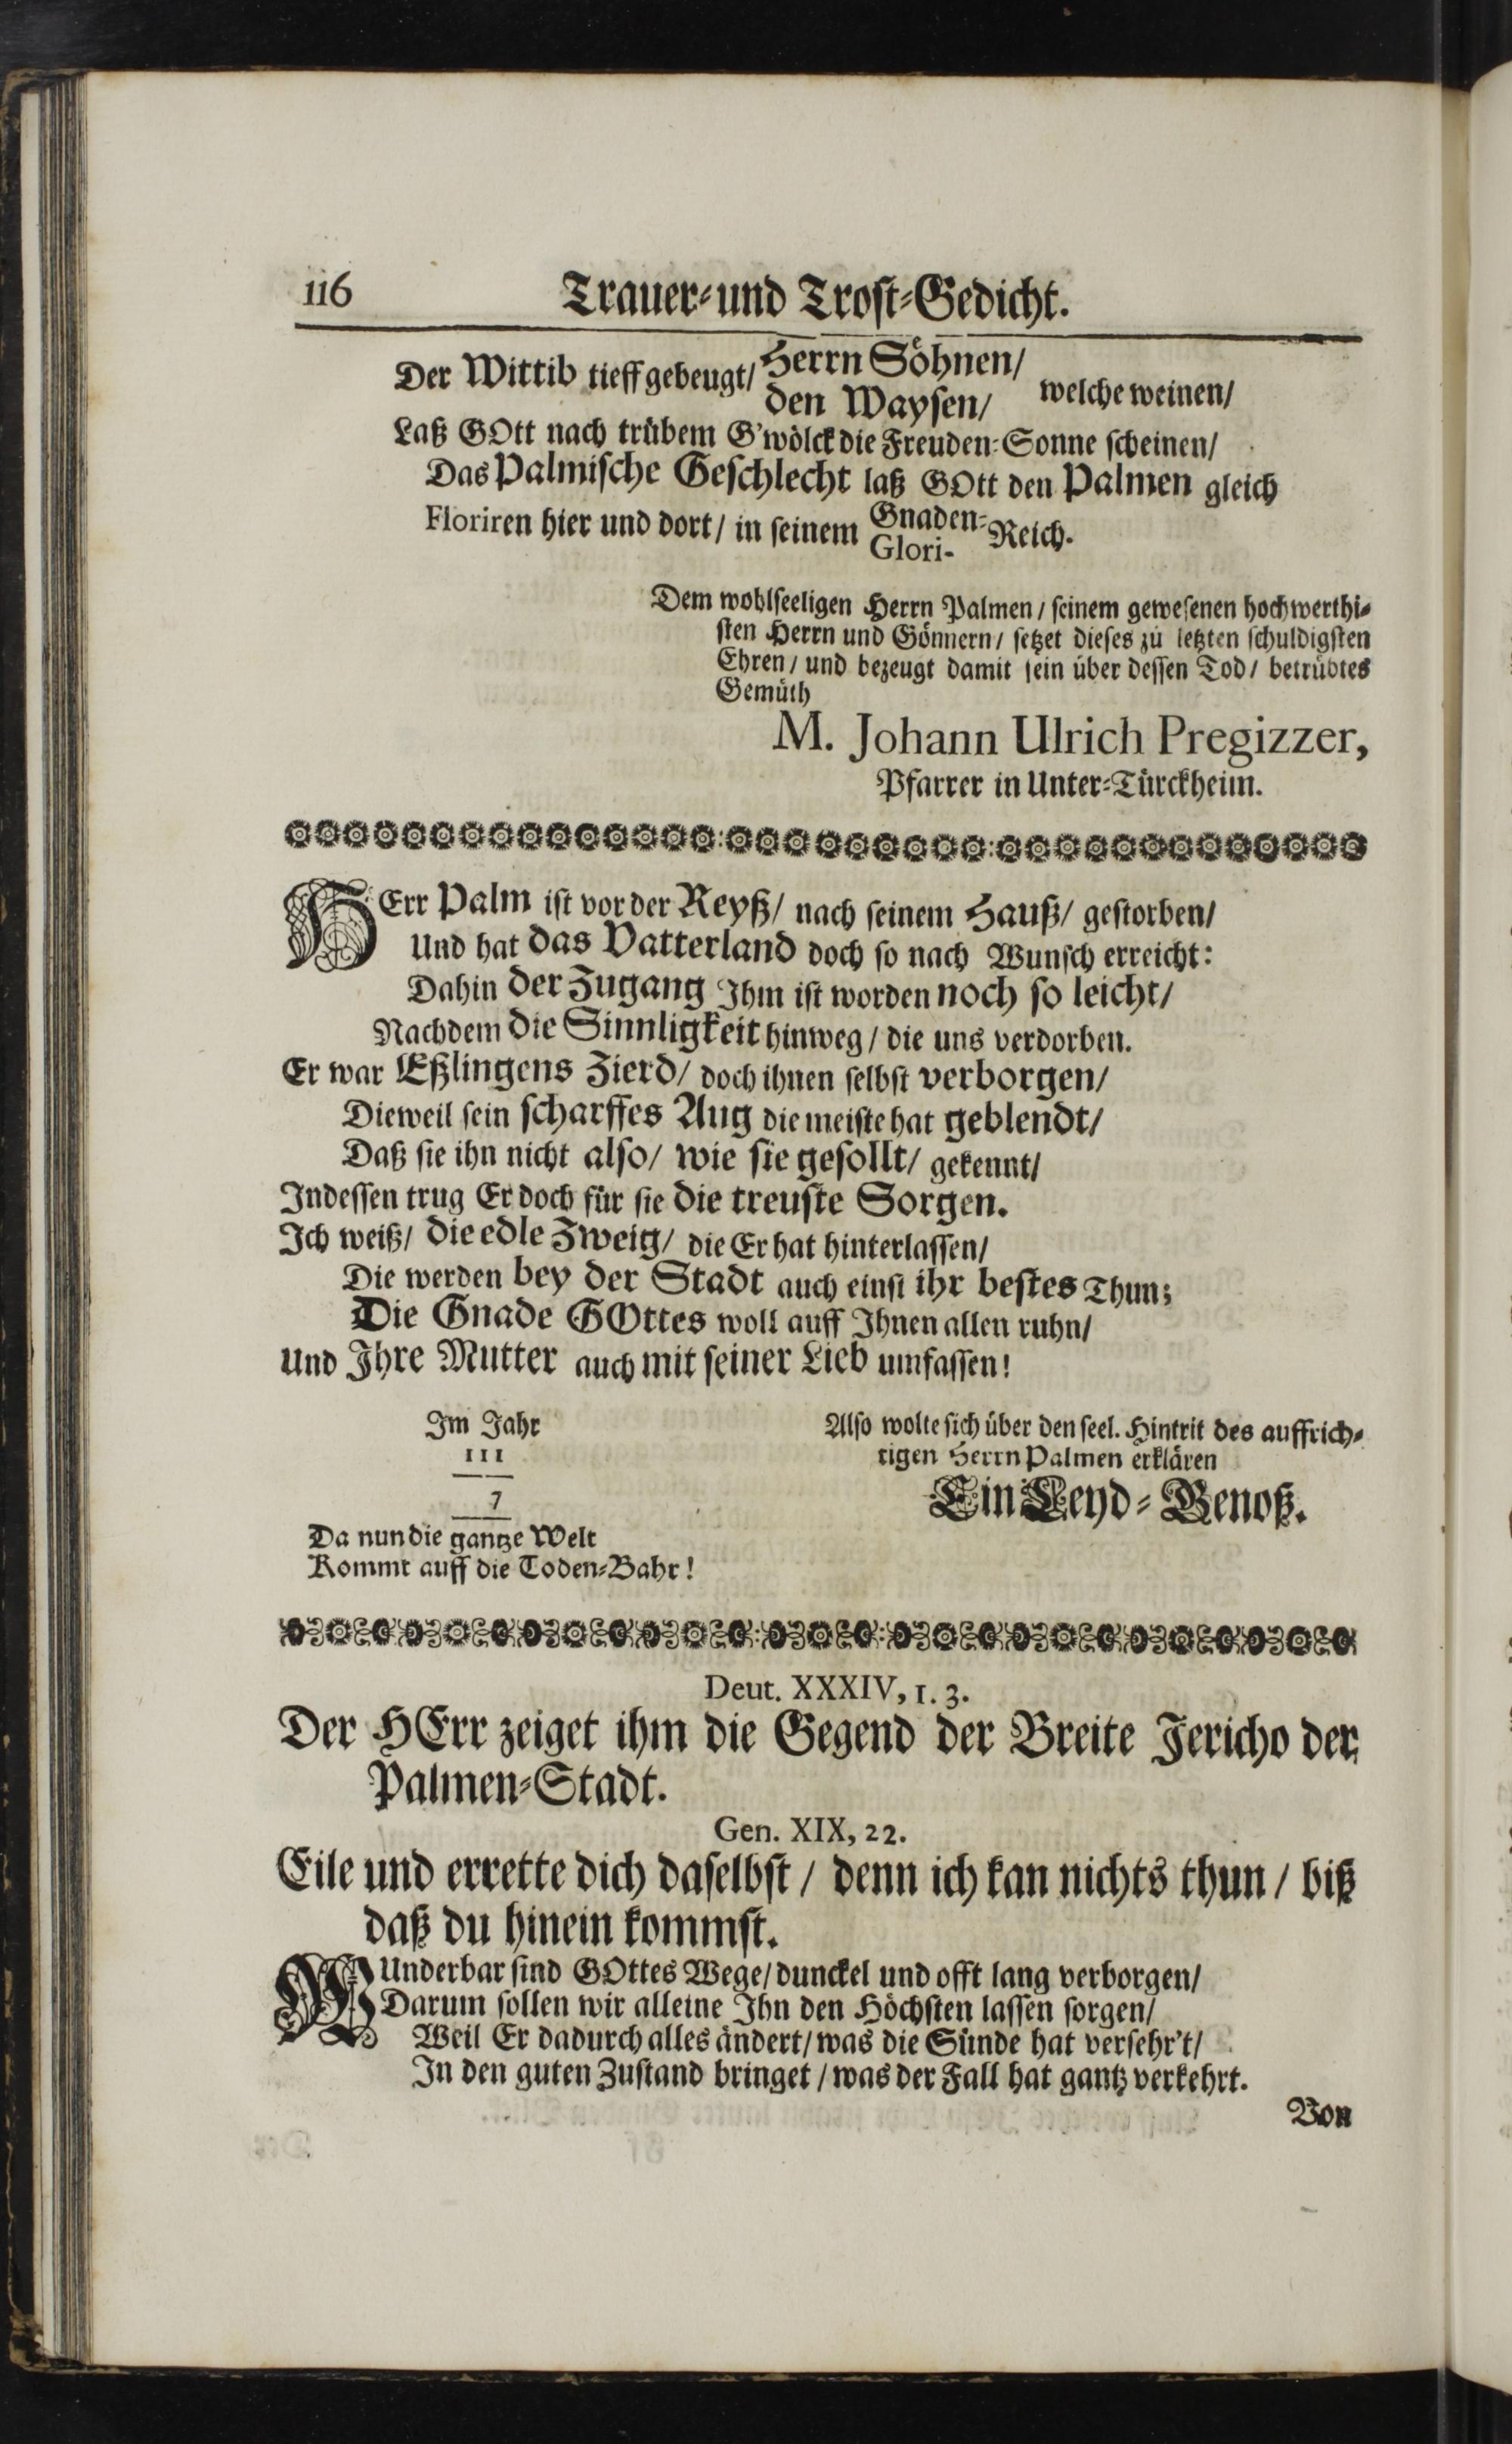 116 Trauer-und Trost-Gedicht.
Der Wittib tieff gebeugt/ Herrn Söhnen/ den Waysen/ welche weinen/
Laß GOtt nach trübem G'wölck die Freuden-Sonne scheinen/
Das Palmische Geschlecht laß GOtt den Palmen gleich
Floriren hier und dort/ in seinem Gnaden- Glori- Reich.
Dem wohlseeligen Herrn Palmen/ seinem gewesenen hochwerthi-
sten Herrn und Gönnern/ setzet dieses zu letzten schuldigsten
Ehren/ und bezeugt damit sein über dessen Tod/ betrübtes
Gemüth
M. Johann Ulrich Pregizzer,
Pfarrer in Unter-Türckheim.
HErr Palm ist vor der Reyß/ nach seinem Hauß/ gestorben/
Und hat das Vatterland doch so nach Wunsch erreicht:
Dahin der Zugang Ihm ist worden noch so leicht/
Nachdem die Sinnligkeit hinweg/ die uns verdorben.
Er war Eßlingens Zierd/ doch ihnen selbst verborgen/
Dieweil sein scharffes Aug die meiste hat geblendt/
Daß sie ihn nicht also/ wie sie gesollt/ gekennt/
Indessen trug Er doch für sie die treuste Sorgen.
Ich weiß/ die edle Zweig/ die Er hat hinterlassen/
Die werden bey der Stadt auch einst ihr bestes Thun;
Die Gnade GOttes woll auff Ihnen allen ruhn/
Und Ihre Mutter auch mit seiner Lieb umfassen!
Im Jahr
III
7
Da nun die gantze Welt
Kommt auff die Toden-Bahr!
Also wolte sich über den seel. Hintrit des auffrich-
tigen Herrn Palmen erklären
Ein Leyd-Genoß.
Deut. XXXIV, 1. 3.
Der HErr zeiget ihm die Gegend der Breite Jericho der
Palmen-Stadt.
Gen. XIX, 22.
Eile und errette dich daselbst/ denn ich kan nichts thun/ biß
daß du hinein kommst.
WUnderbar sind GOttes Wege/ dunckel und offt lang verborgen/
Darum sollen wir alleine Ihn den Höchsten lassen sorgen/
Weil Er dadurch alles ändert/ was die Sünde hat versehr't/
In den guten Zustand bringet/ was der Fall hat gantz verkehrt.
Von